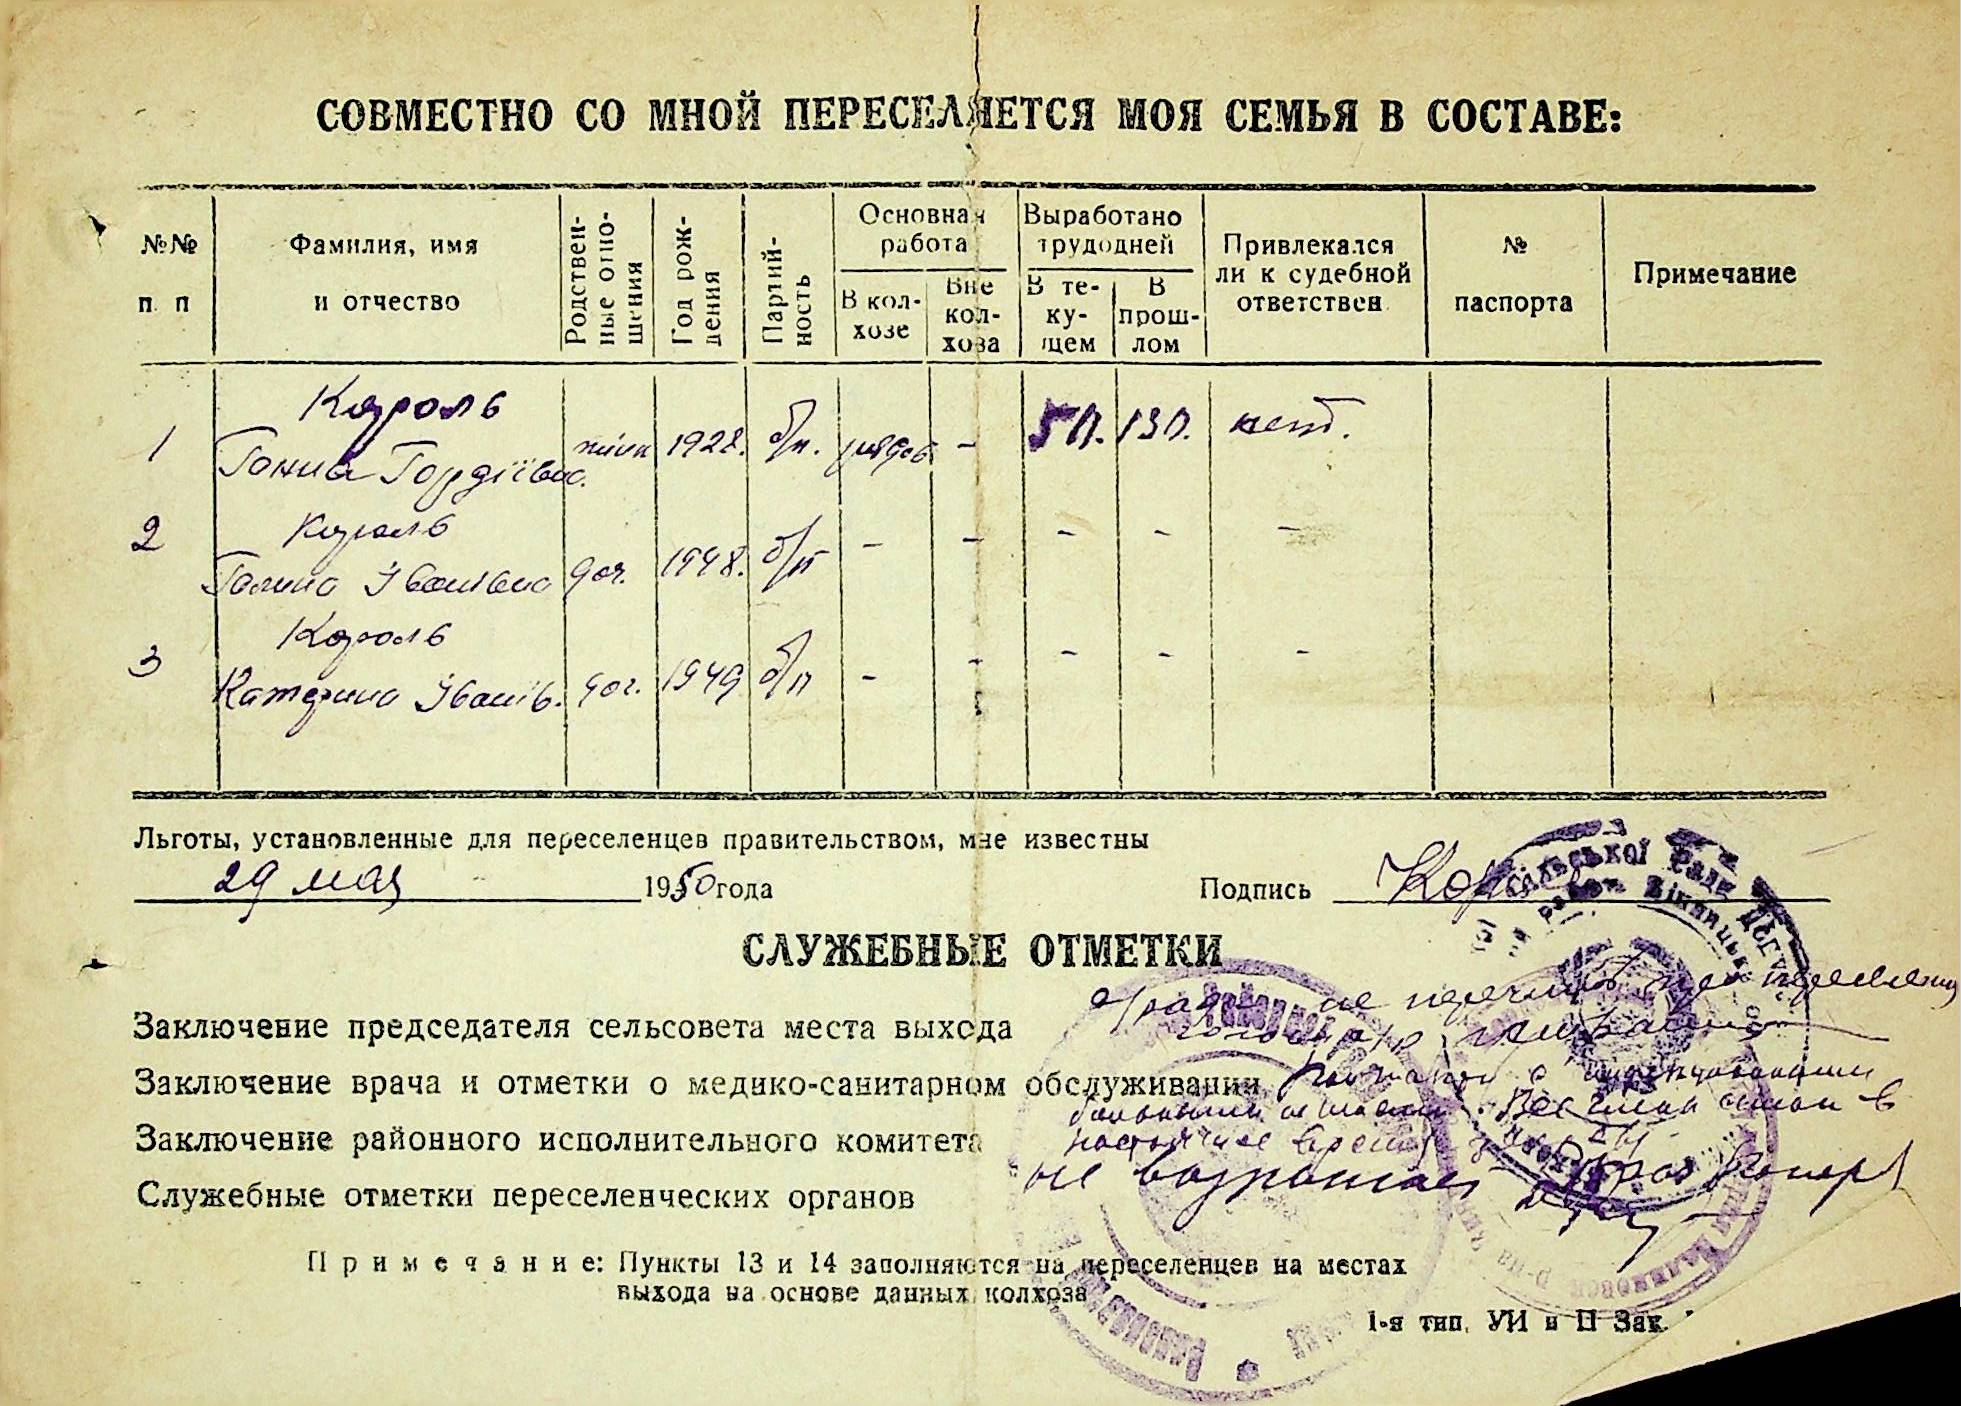 СОВМЕСТНО СО МНОЙ ПЕРЕСЕЛЯЕТСЯ МОЯ СЕМЬЯ В СОСТАВЕ:
№№ п. п
Фамилия, имя и отчество
Родственные отношения
Год рождения
Партийность
Основная работа
В колхозе
Вне колхоза
Выработано трудодней
В текущем
В прошлом
Привлекался ли к судебной ответствен.
№ паспорта
Примечание
1 Король Ганна Гордіївна. жінк 1928. б/п. рядов - 50. 130. нет.
2 Король Галина Іванівна доч. 1948. б/п - - - - -
3 Король Катерина Іванів. доч. 1949 б/п - - - - -
Льготы, установленные для переселенцев правительством, мне известны
29 мая 1950 года
Подпись Король
СЛУЖЕБНЫЕ ОТМЕТКИ
Заключение председателя сельсовета места выхода
Заключение врача и отметки о медико-санитарном обслуживании
Заключение районного исполнительного комитета
не возражает
Служебные отметки переселенческих органов
Примечание: Пункты 13 и 14 заполняются на переселенцев на местах
выхода на основе данных колхоза
1-я тип. УИ и П Зак.